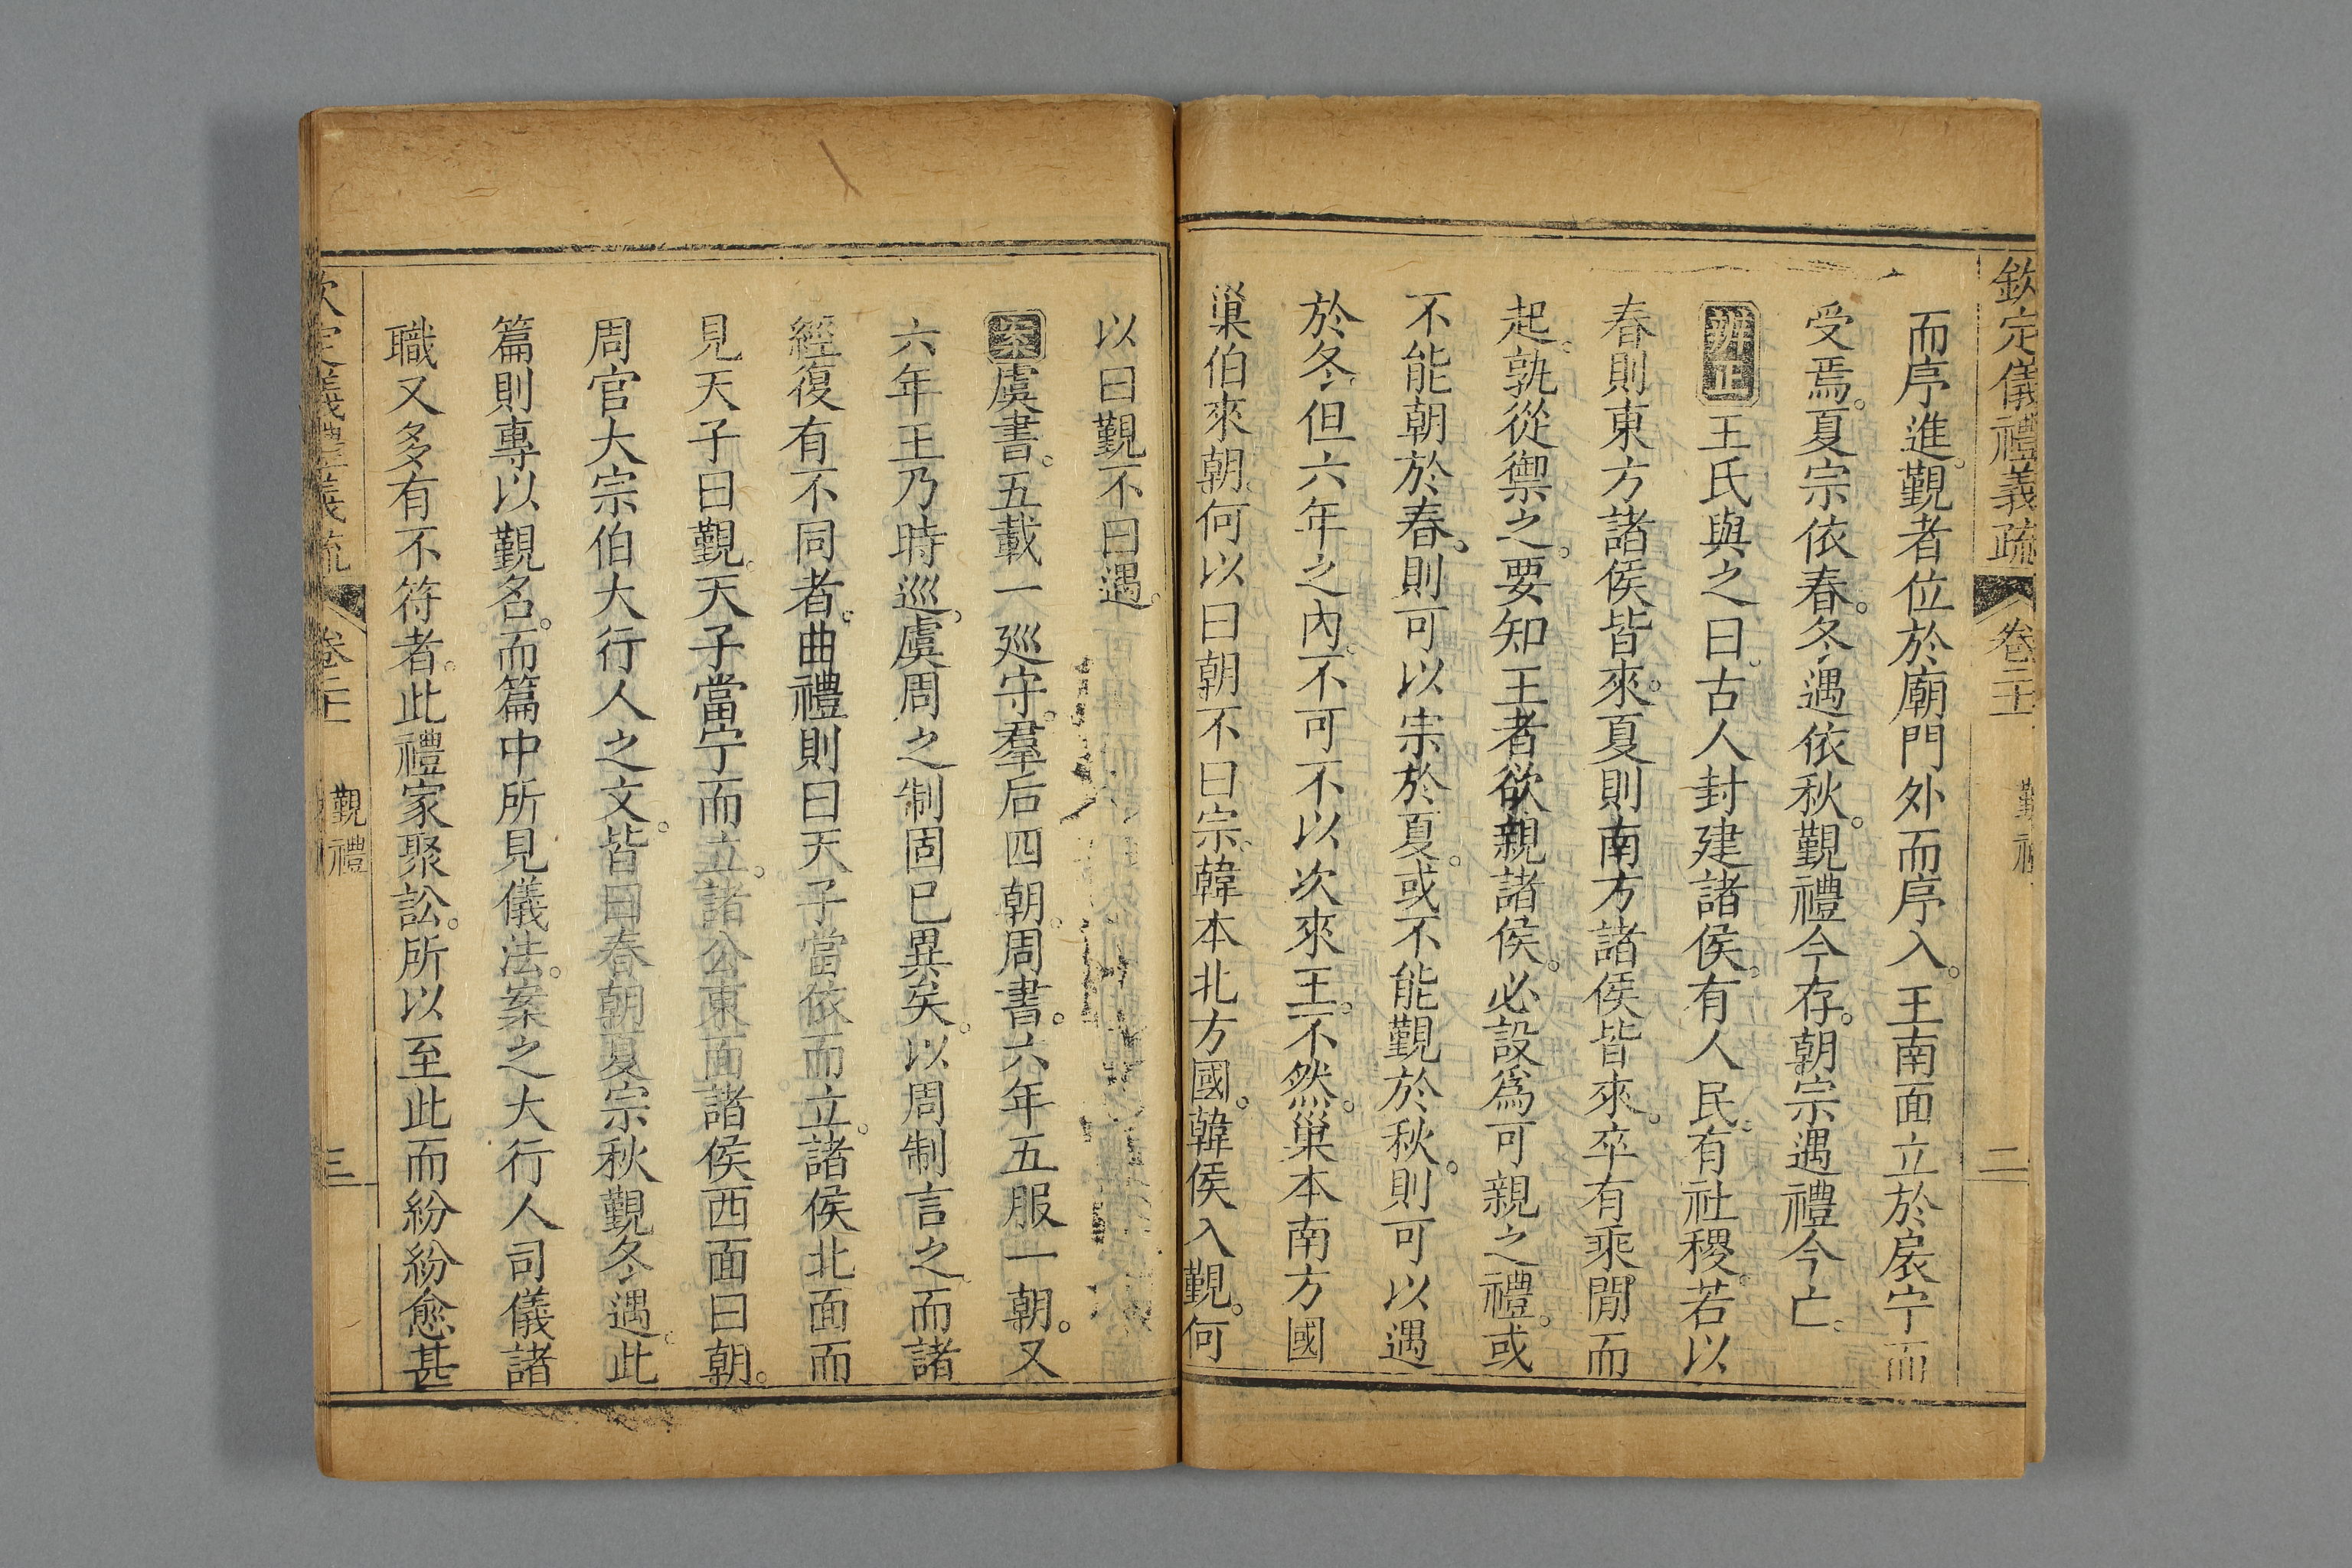 欽定儀禮義疏 卷二十 覲禮 二
而序進。覲者位於廟門外而序入。王南面立於扆宁而
受焉。夏宗依春。冬遇依秋。覲禮今存。朝宗遇禮今亡。
辨正王氏與之曰。古人封建諸侯。有人民。有社稷。若以
春則東方諸侯皆來。夏則南方諸侯皆來。卒有乘閒而
起。孰從禦之。要知王者欲親諸侯。必設爲可親之禮。或
不能朝於春。則可以宗於夏。或不能覲於秋。則可以遇
於冬。但六年之內。不可不以次來王。不然。巢本南方國
巢伯來朝。何以曰朝不曰宗。韓本北方國。韓侯入覲。何
以曰覲不曰遇。
案虞書。五載一巡守。羣后四朝。周書。六年五服一朝。又
六年王乃時巡。虞周之制固已異矣。以周制言之。而諸
經復有不同者。曲禮則曰天子當依而立。諸侯北面而
見天子曰覲。天子當宁而立。諸公東面諸侯西面曰朝。
周官大宗伯大行人之文。皆曰春朝夏宗秋覲冬遇。此
篇則專以覲名。而篇中所見儀法。案之大行人司儀諸
職又多有不符者。此禮家聚訟。所以至此而紛紛愈甚
欽定儀禮義疏 卷二十 覲禮 三